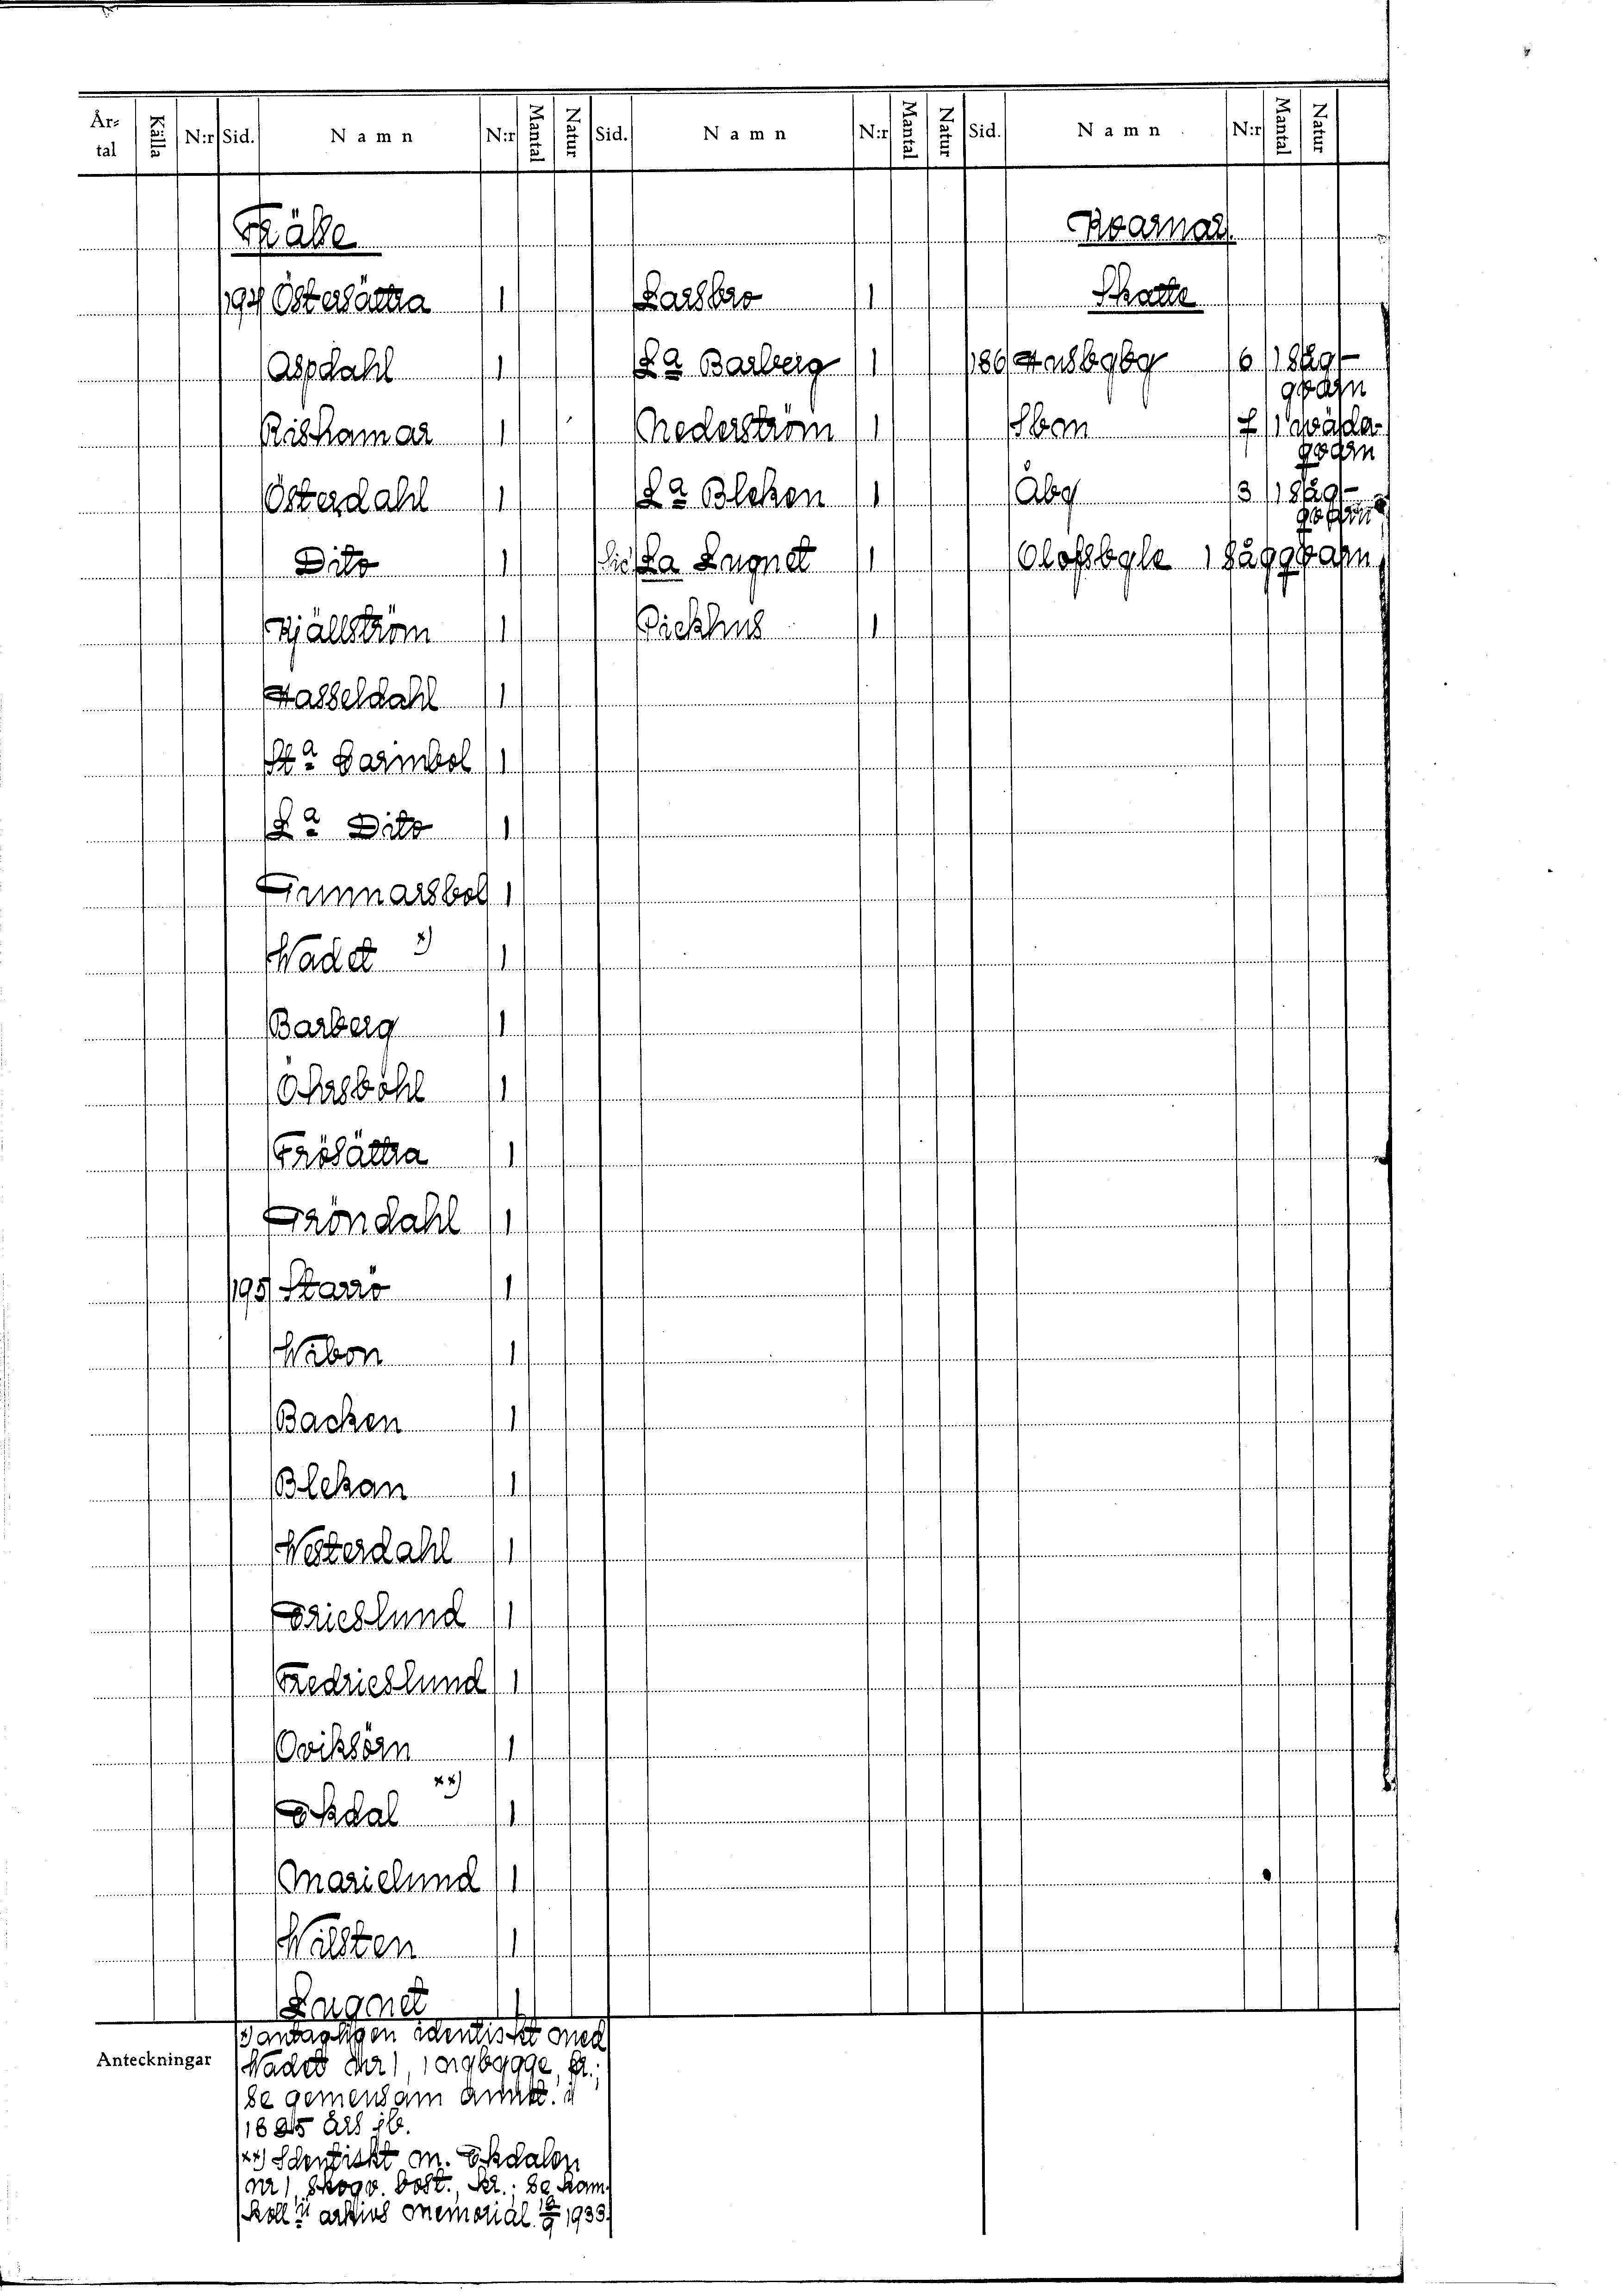 År-tal Källa N:r Sid. Namn N:r Mantal Natur Sid. Namn N:r Mantal Natur Sid. Namn N:r Mantal Natur
Frälse
194 Östersättra 1
Aspdahl 1
Rishamar 1
Österdahl 1
Dito 1
Kjällström 1
Hasseldahl 1
St:a Darmbol 1
L:a Dito 1
Gunnarsbol 1
Wadet x) 1
Barberg 1
Öhrsböhl 1
Frösättra 1
Gröndahl 1
195 Starrö 1
Wibon 1
Backen 1
Blekan 1
Westerdahl 1
Ericslund 1
Fredricslund 1
Oviksörn 1
Ekdal xx) 1
Marielund 1
Wilsten 1
Lugnet 1
Larsbro 1
L:a Barberg 1
Nederström 1
L:a Bleken 1
Sic La Lugnet 1
Pickhus 1
Kvarnar.
Skatte
186 Husbyby 6 1 såg-
qvarn
Sbm 7 1 wäda-
qvarn
Åby 3 1 såg-
qvarn
Olofsbyle 1 sågqvarn
Anteckningar
x) antagligen identiskt med
Wadet Nr 1, 1 nybygge, fr.;
se gemensam anmkt. i
1825 års jb.
xx) Identiskt m. Ekdalen
nr 1, skogv. bost., kr.; se kam.
koll:ii arkivs memorial 1933.